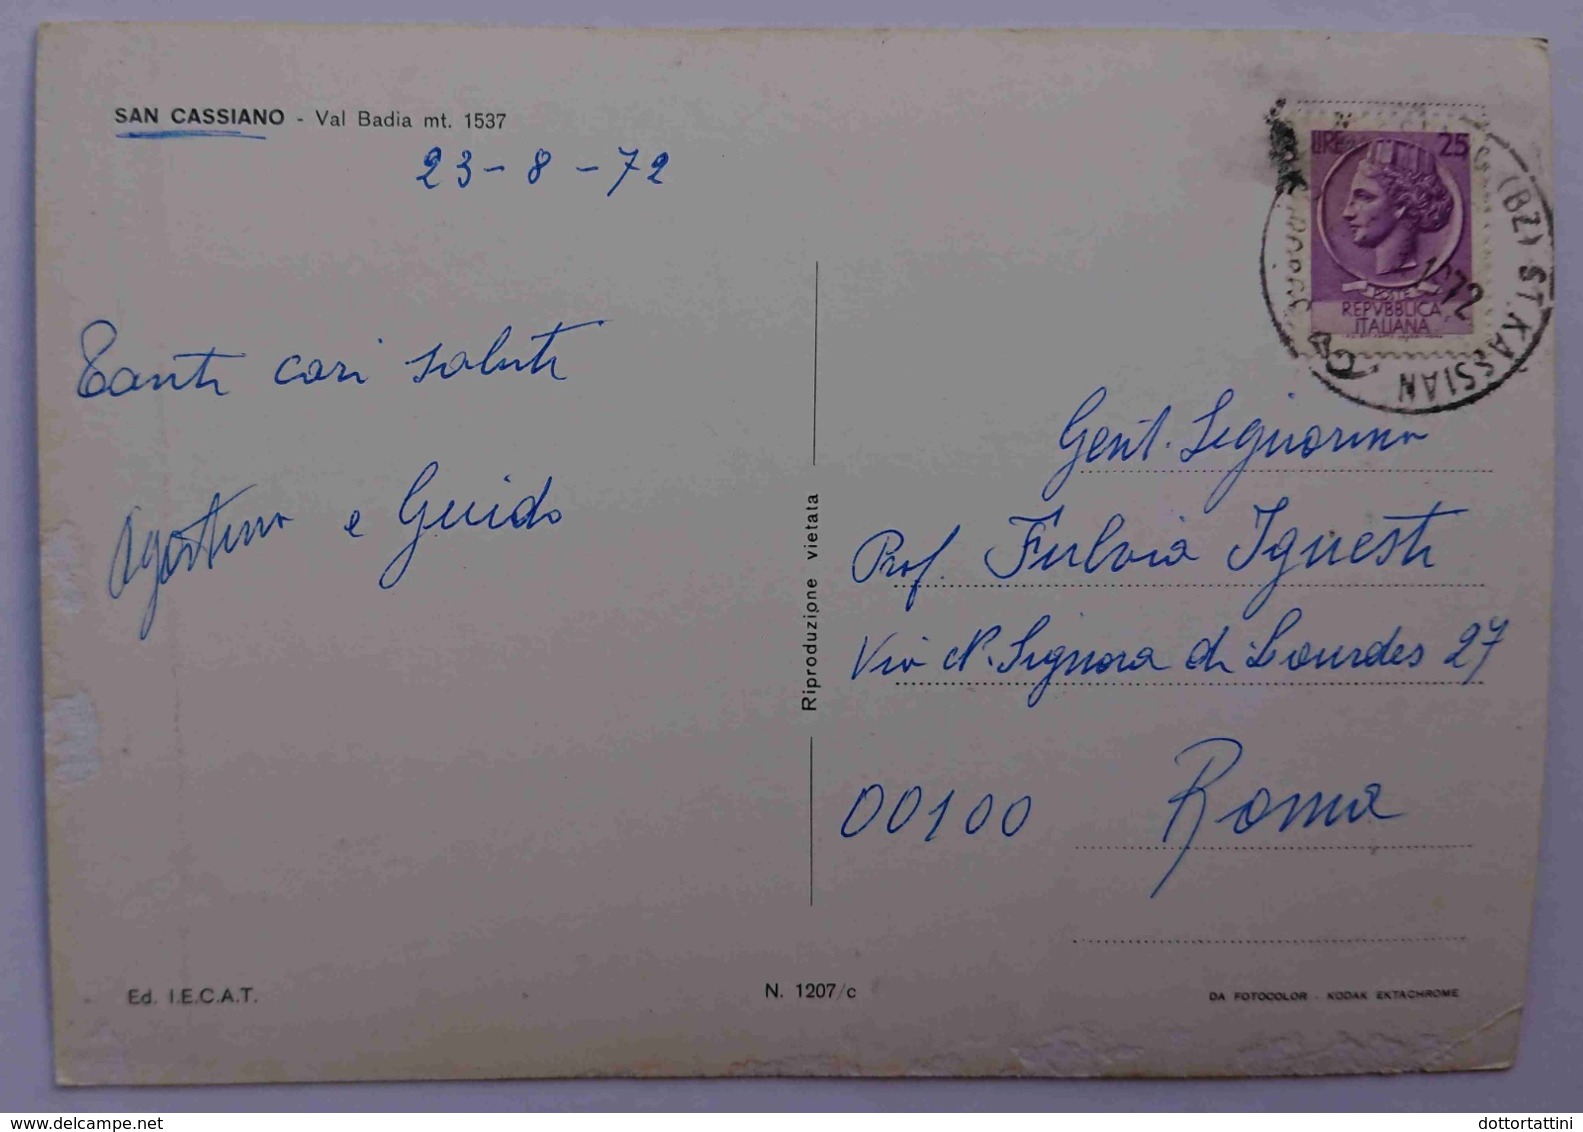 SAN CASSIANO - Val Badia mt. 1537
23-8-72
Tanti cari saluti
Agostino e Guido
Riproduzione vietata
LIRE 25
POSTE
REPVBBLICA
ITALIANA
(BZ) ST. KASSIAN
1972
Gent. Signorina
Prof. Fulvia Iguesti
Via N. Signora di Lourdes 27
00100 Roma
Ed. I.E.C.A.T.
N. 1207/c
DA FOTOCOLOR - KODAK EKTACHROME
www.delcampe.net
dottortattini